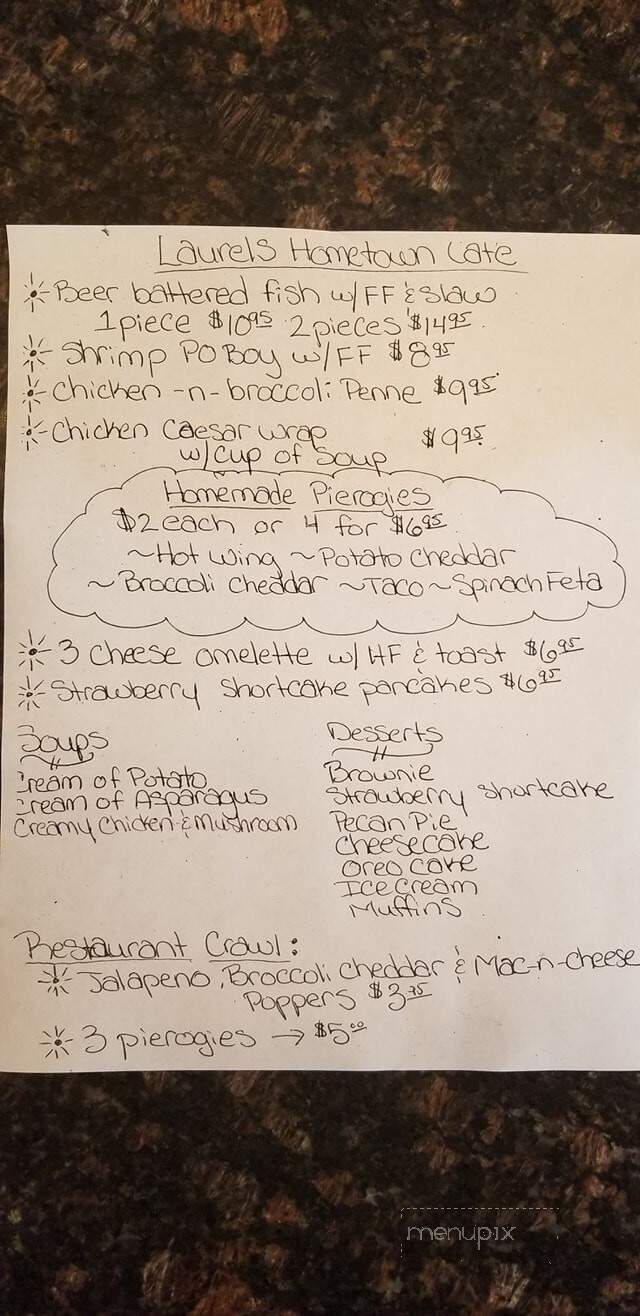 Laurels Hometown Cafe
Beer battered fish w/FF & slaw
1 piece $10.95 2 pieces $14.95
Shrimp PO Boy w/FF $8.95
Chicken -n- broccoli Penne $9.95
Chicken Caesar wrap $9.95
w/cup of Soup
Homemade Pierogies
$2 each or 4 for $6.95
~Hot wing ~Potato cheddar
~Broccoli cheddar ~Taco ~Spinach Feta
3 cheese omelette w/HF & toast $6.95
Strawberry shortcake pancakes $6.95
Soups
Cream of Potato
Cream of Asparagus
Creamy Chicken & Mushroom
Desserts
Brownie
Strawberry shortcake
Pecan Pie
Cheesecake
Oreo cake
Ice Cream
Muffins
Restaurant Crawl:
Jalapeno, Broccoli cheddar & Mac-n-cheese
Poppers $3.75
3 pierogies → $5.00
menupix